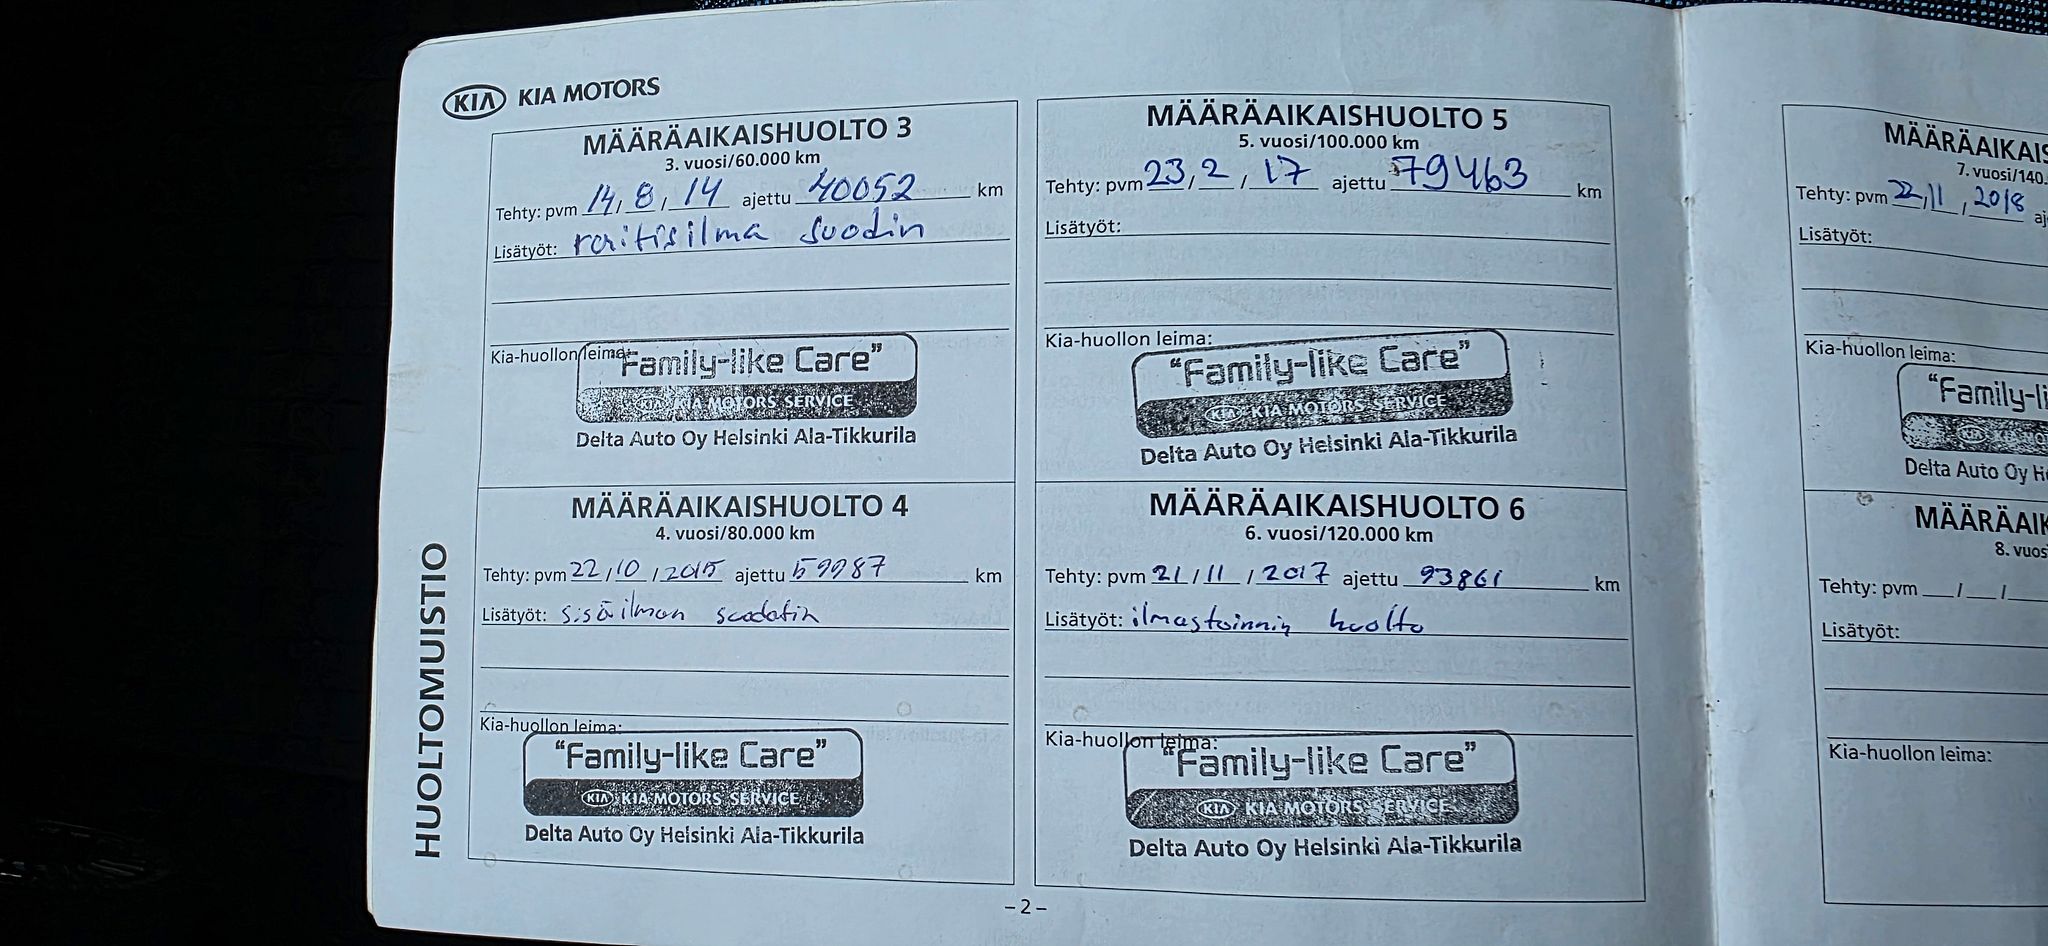 KIA KIA MOTORS
MÄÄRÄAIKAISHUOLTO 3
3. vuosi/60.000 km
Tehty: pvm 14, 8 / 14 ajettu 40052 km
Lisätyöt: raitisilma suodin
Kia-huollon leima:
"Family-like Care"
KIA KIA MOTORS SERVICE
Delta Auto Oy Helsinki Ala-Tikkurila
MÄÄRÄAIKAISHUOLTO 4
4. vuosi/80.000 km
Tehty: pvm 22 / 10 / 2015 ajettu 59987 km
Lisätyöt: sisäilman suodatin
Kia-huollon leima:
"Family-like Care"
KIA KIA MOTORS SERVICE
Delta Auto Oy Helsinki Ala-Tikkurila
HUOLTOMUISTIO
MÄÄRÄAIKAISHUOLTO 5
5. vuosi/100.000 km
Tehty: pvm 23, / 2 / 17 ajettu 79463 km
Lisätyöt:
Kia-huollon leima:
"Family-like Care"
KIA KIA MOTORS SERVICE
Delta Auto Oy Helsinki Ala-Tikkurila
MÄÄRÄAIKAISHUOLTO 6
6. vuosi/120.000 km
Tehty: pvm 21 / 11 / 2017 ajettu 93861 km
Lisätyöt: ilmastoinnin huolto
Kia-huollon leima:
"Family-like Care"
KIA KIA MOTORS SERVICE
Delta Auto Oy Helsinki Ala-Tikkurila
– 2 –
MÄÄRÄAIKAIS
7. vuosi/140.
Tehty: pvm 22, / 11 / 2018 aj
Lisätyöt:
Kia-huollon leima:
"Family-li
KIA KIA MO
Delta Auto Oy H
MÄÄRÄAIK
8. vuos
Tehty: pvm / /
Lisätyöt:
Kia-huollon leima: